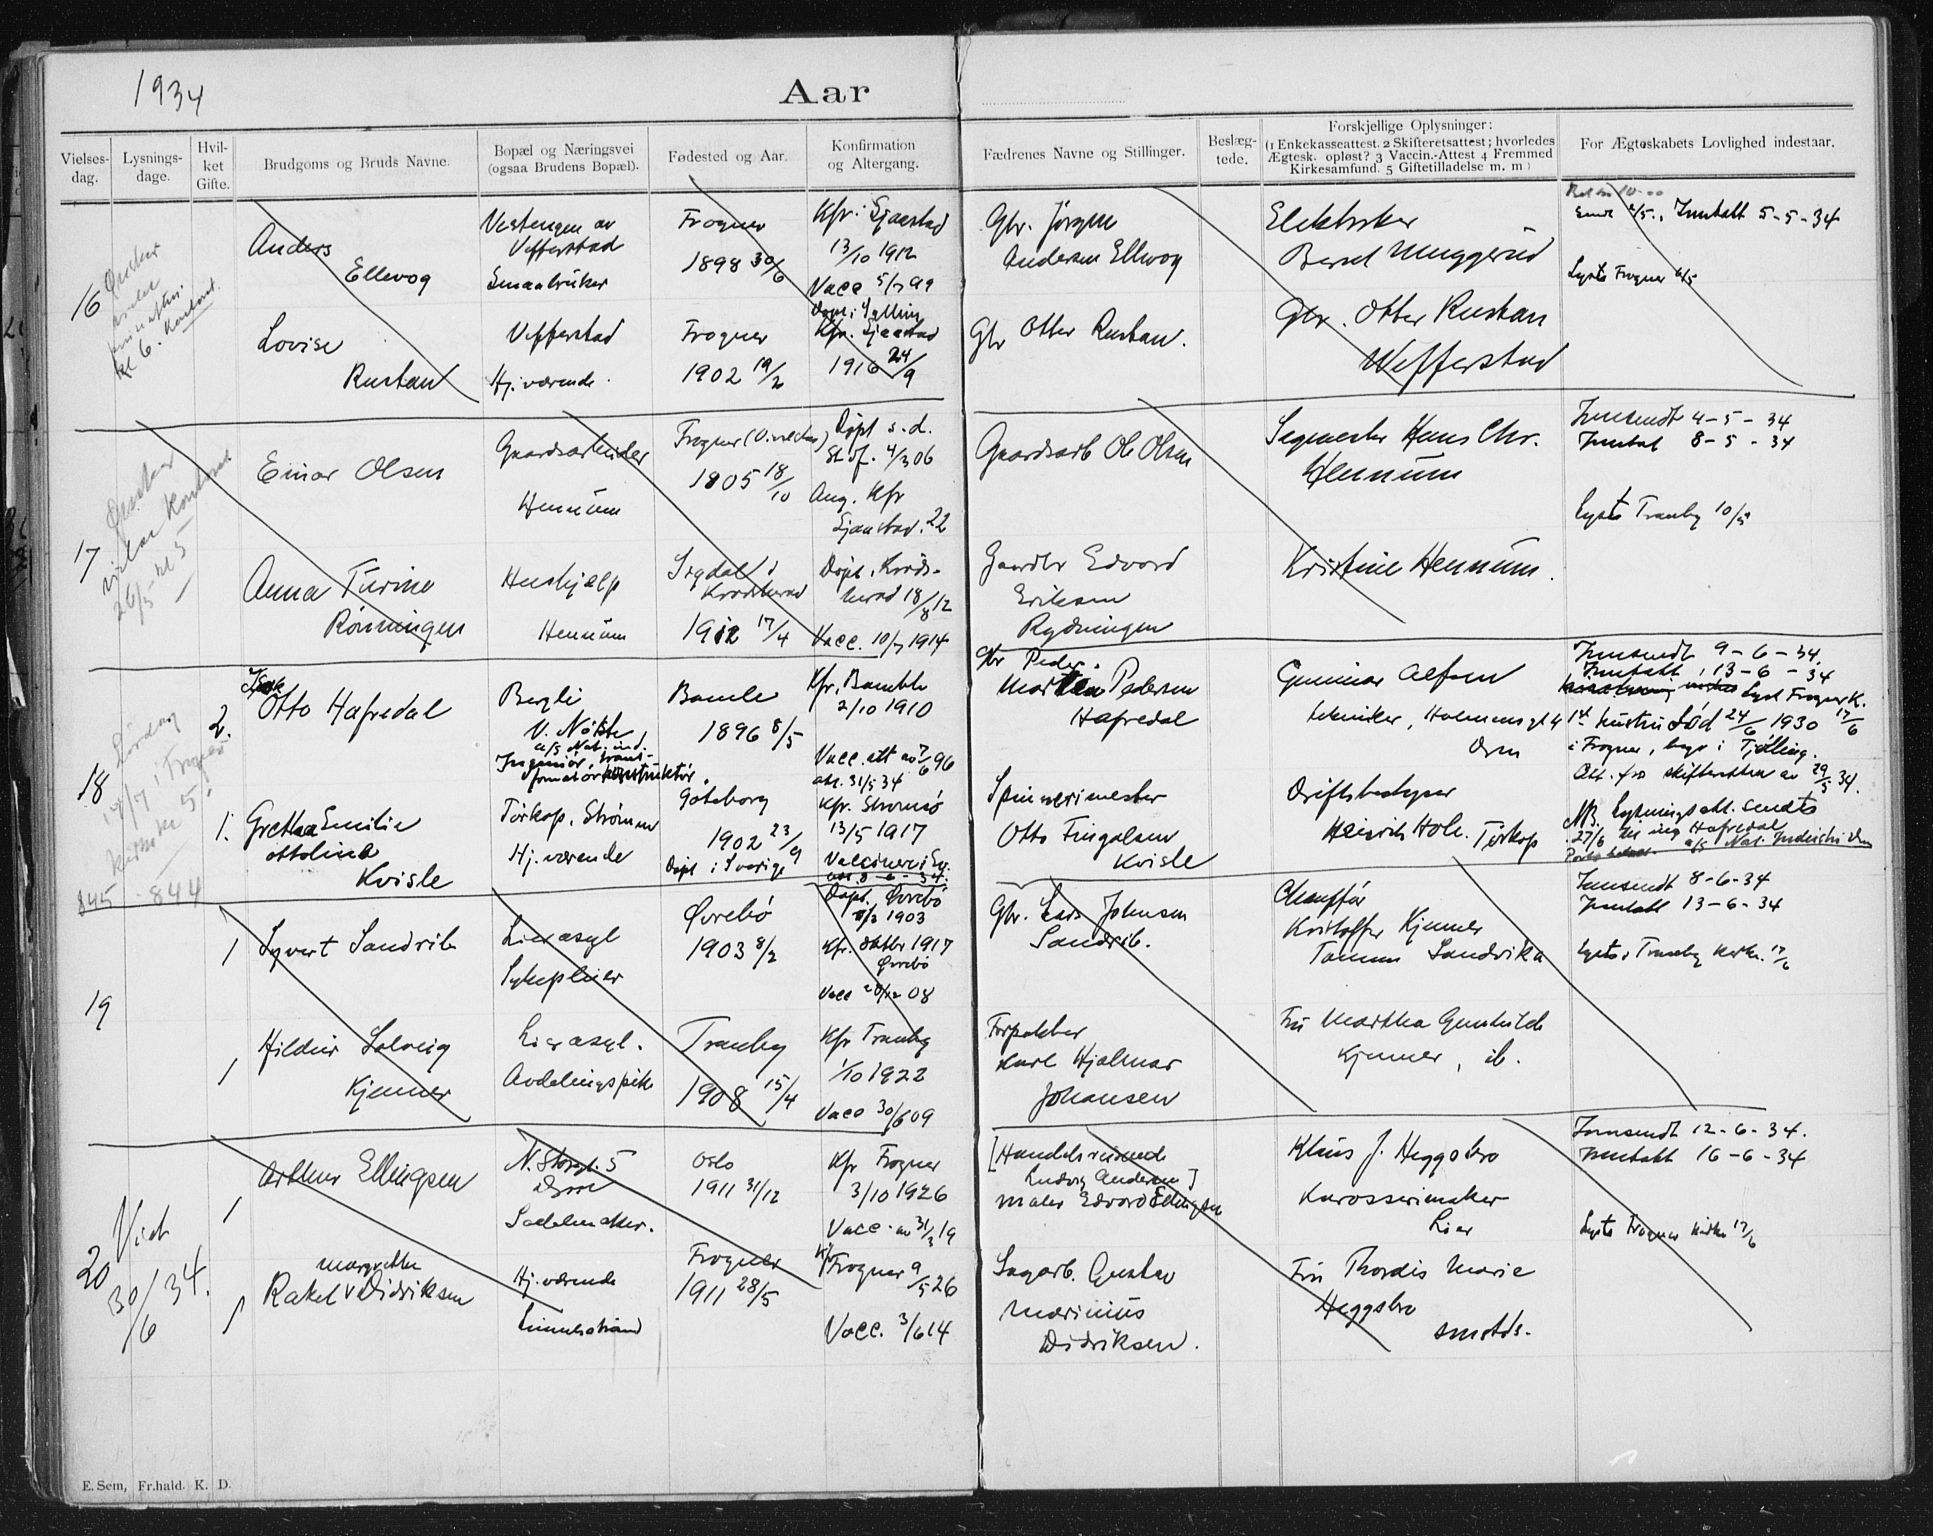 1934
Aar
Vielses-
dag.
Lysnings-
dage.
Hvil-
ket
Gifte.
Brudgoms og Bruds Navne.
Bopæl og Næringsvei
(ogsaa Brudens Bopæl).
Fødested og Aar.
Konfirmation
og Altergang.
Fædrenes Navne og Stillinger.
Beslæg-
tede.
Forskjellige Oplysninger:
(1 Enkekasseattest. 2 Skifteretsattest; hvorledes
Ægtesk. opløst? 3 Vaccin.-Attest 4 Fremmed
Kirkesamfund. 5 Giftetilladelse m. m)
For Ægteskabets Lovlighed indestaar.
16
Ønsker
kl 6. Kontant.
Anders
Ellevog
Vestengen av
Vefferstad
Smaabruker
Frogner
1898 30/6
Kfr. i Sjaastad
13/10 1912
Vacc 5/7 99
Gbr. Jørgen
Andersen Ellevog
Elektriker
Berset Muggerud
Sendt 2/5., Inntatt 5-5-34
Lyst Frogner 6/5
Lovise
Rustan
Vefferstad
Hj. værende.
Frogner
1902 19/2
Døpt i Sylling
Kfr. Sjaastad
1916 24/9
Gbr Otter Rustan.
Gbr. Otter Rustan
Wefferstad
17
Ønsker
vielse Kontant
26/5 kl 5
Einar Olsen
Gaardsarbeider
Hennum
Frogner
1905 18/10
Døpt s. d.
St. of. 4/3 06
Aug. Kfr
Sjaastad. 22
Gaardsarb Ole Olsen
Sagmester Hans Chr.
Hennum
Innsendt 4-5-34
Inntat 8-5-34
Lyst Tranby 10/5
Anna Turine
Rönningen
Hushjælp
Hennum
Sigdal i
Krødsherad
1912 17/4
Døpt, Krøds-
herad 18/8 12
Vacc. 10/7 1914
Gaardbr Edvard
Eriksen
Rydningen
Kristine Hennum.
18
Lørdag
14/7 i Frogner
kirke 5.
845 - 844
2.
Isak
Otto Hafredal
Bergli
V. Nøste
a/s Nat. ind.
Ingeniør, trans-
formatorkonstruktør.
Bamle
1896 8/5
Kfr. Bamble
2/10 1910
Vacc. att av 7/6 96
att. 31/5 34
Gbr Peder
Martin Pedersen
Hafredal
Gunnar Alfsen
tekniker, Holmensgt 4
Drm
Innsendt 9-6-34.
Inntatt, 13-6-34
Lyst Frogner K. 17/6
1st hustru død 24/6 1930
i Frogner, begr i Tjølling.
Att. fra skifteretten av 29/5 34.
1.
Grethe Emilie
Ottolina
Kvisle
Torkop, Strømm
Hj. værende
Göteborg
1902 23/9
Døpt i Sverige
Kfr. Strømsø
13/5 1917
Vaccinert i Sv.
att. 8-6-34.
Spinnerimester
Otto Fingalsen
Kvisle
Driftsbestyrer
Heinrich Hole. Torkop
NB. Lysningsatt. sendts
27/6 til ing Hafredal
a/s Nat. Industri Drm
Porto betalt.
19
1
Syvert Sandrib
Lierasyl
Sykepleier
Øvrebö
1903 8/2
Døpt, Øvrebö
8/3 1903
Kfr. oktbr 1917
Øvrebö
Vacc 20/12 08
Gbr. Lars Johnsen
Sandrib.
Chauffør
Kristoffer Kjenner
Tanum Sandvika
Innsendt 8-6-34
Inntatt 13-6-34
Lyst i Tranby kirke. 17/6
1
Hildur Solveig
Kjenner
Lierasyl.
Avdelingspike
Tranby
1908 15/4
Kfr Tranby
1/10 1922
Vacc 30/6 09
Forpakter
Karl Hjalmar
Johansen
Fru Martha Gunhilde
Kjenner, ib.
20
Viet
30/6 34.
1
Arthur Ellingsen
N. Storgt. 5
Drm
Sadelmaker.
Oslo
1911 31/12
Kfr Frogner
3/10 1926
Vacc. av 31/3 19
[Handelsreisende
Ludvig Andersen]
Maler Edvard Ellingsen
Klaus J. Heggsbro
Karosserimaker
Lier
Innsendt 12-6-34.
Inntatt 16-6-34
Lyst Frogner kirke 17/6
1
Margrethe
Rakel Didriksen
Hj. værende
Linnesstrand
Frogner
1911 28/5
Kfr Frogner 9/5 26
Vacc. 3/6 14
Sagarb. Gustav
Marinius
Didriksen.
Fru Thordis Marie
Heggsbro
smstds.
E. Sem, Fr.hald. K. D.